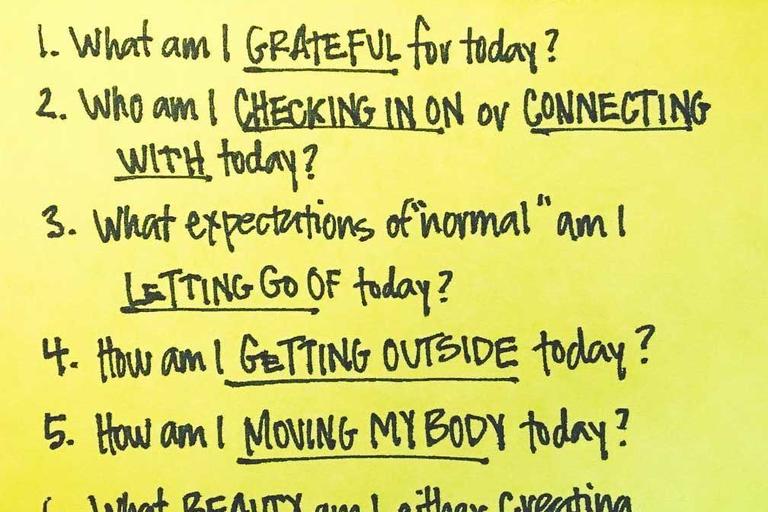 1. What am I GRATEFUL for today?
2. Who am I CHECKING IN ON or CONNECTING
WITH today?
3. What expectations of "normal" am I
LETTING GO OF today?
4. How am I GETTING OUTSIDE today?
5. How am I MOVING MY BODY today?
6. What BEAUTY am I either creating